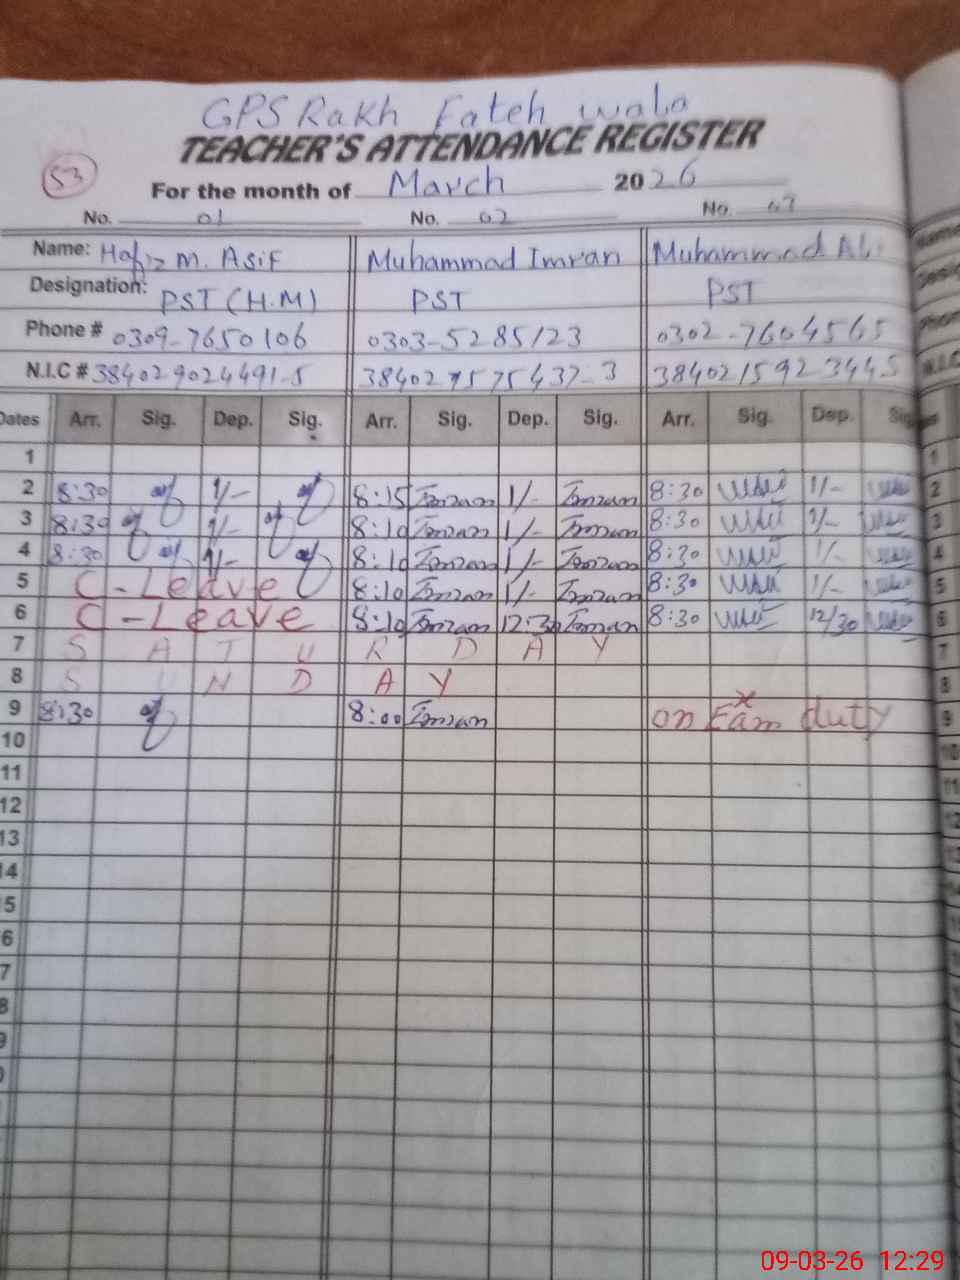 GPS Rakh Fateh wala
TEACHER'S ATTENDANCE REGISTER
53
For the month of March 2026
No. 01 No. 02 No. 03
Name: Hafiz M. Asif Muhammad Imran Muhammad Ali
Designation: PST (H.M) PST PST
Phone # 0309-7650106 0303-5285123 0302-7604565
N.I.C # 384029024491-5 384027575437-3 384021592344 5
Dates Arr. Sig. Dep. Sig. Arr. Sig. Dep. Sig. Arr. Sig. Dep. Sig
1 1
2 8:30 1/- 8:15 Imran 1/- Imran 8:30 1/- 2
3 8:30 1/- 8:10 Imran 1/- Imran 8:30 1/- 3
4 8:30 1/- 8:10 Imran 1/- Imran 8:30 1/- 4
5 C-Leave 8:10 Imran 1/- Imran 8:30 1/- 5
6 C-Leave 8:10 Imran 12:30 Imran 8:30 12/30 6
7 S A T U R D A Y 7
8 S U N D A Y 8
9 8:30 8:00 Imran on Exam duty 9
10 10
11 11
12 12
13
14
5
6
7
8
9
09-03-26 12:29